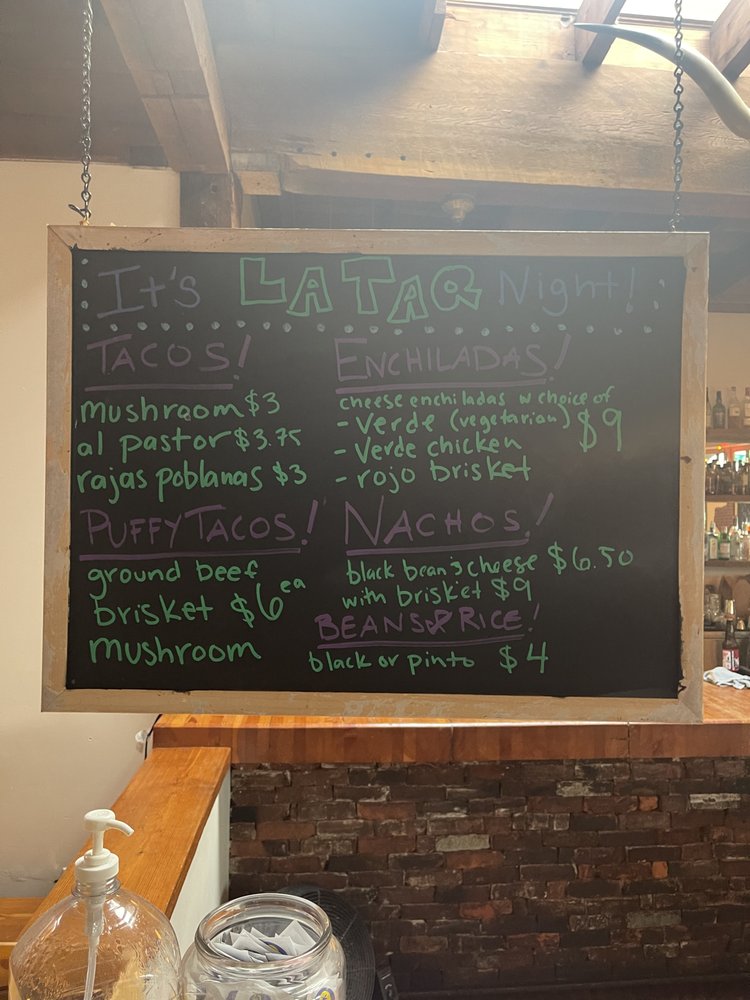 It's LA TAQ Night!
TACOS!
mushroom $3
al pastor $3.75
rajas poblanas $3
ENCHILADAS!
cheese enchiladas w choice of
- Verde (vegetarian) $9
- Verde chicken
- rojo brisket
PUFFY TACOS!
ground beef
brisket $6 ea
mushroom
NACHOS!
black bean & cheese $6.50
with brisket $9
BEANS & RICE!
black or pinto $4